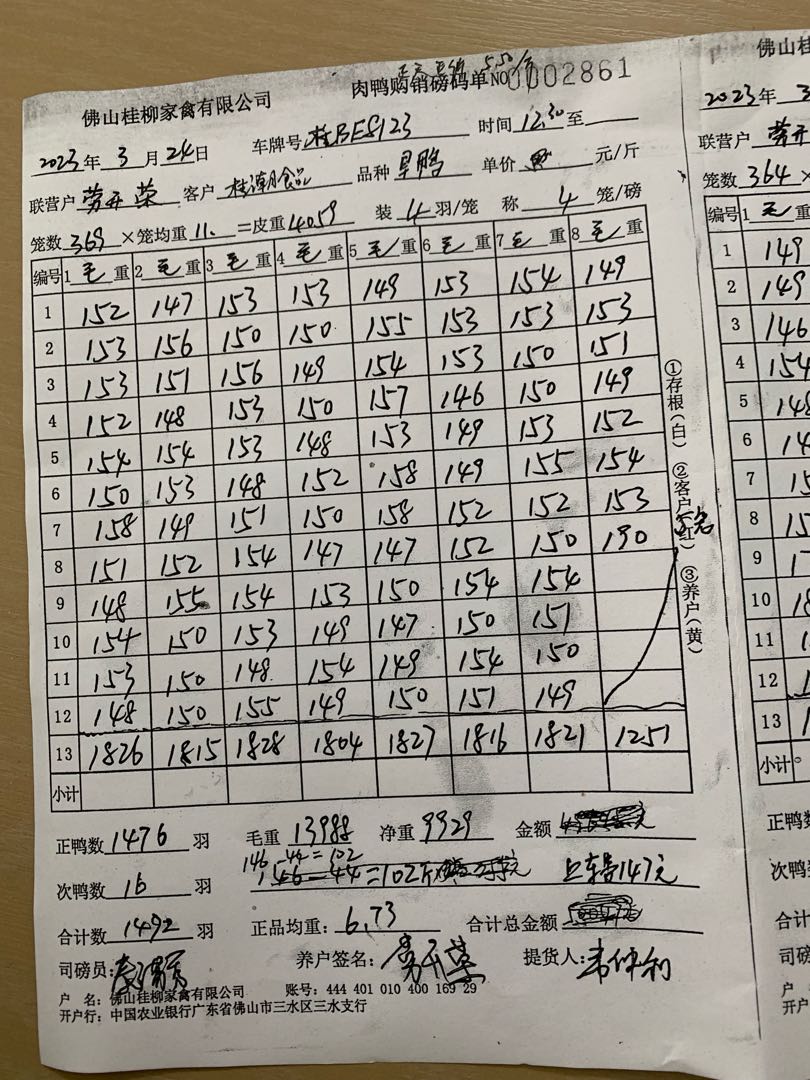 5.50/斤
佛山桂柳家禽有限公司 肉鸭购销磅码单 NO 0002861
2023年 3月24日 车牌号 桂BE8123 时间 12:30 至
联营户 劳开荣 客户 桂潮食品 品种 单价 元/斤
笼数 369 ×笼均重 11. =皮重 4059 装 4 羽/笼 称 4 笼/磅
编号 1 毛 重 2 毛 重 3 毛 重 4 毛 重 5 毛 重 6 毛 重 7 毛 重 8 毛 重
1 152 147 153 153 149 153 154 149
2 153 156 150 150 155 153 153 153
3 153 151 156 149 154 153 150 151
4 152 148 153 150 157 146 150 149
5 154 154 153 148 153 149 153 152
6 150 153 148 152 158 149 155 154
7 158 149 151 150 158 152 152 153
8 151 152 154 147 147 152 150 190
9 148 155 154 153 150 154 154
10 154 150 153 149 147 150 151
11 153 150 148 154 149 154 150
12 148 150 155 149 150 151 149
13 1826 1815 1828 1804 1827 1816 1821 1251
小计
①存根(白) ②客户(红) ③养户(黄)
5笼
正鸭数 1476 羽 毛重 13988 净重 9929 金额
146-44=102
次鸭数 16 羽 146-44=102斤 上车费147元
合计数 1492 羽 正品均重: 6.73 合计总金额
司磅员: 养户签名: 劳开荣 提货人: 韦仲和
户 名: 佛山桂柳家禽有限公司 账号: 444 401 010 400 169 29
开户行: 中国农业银行广东省佛山市三水区三水支行
佛山桂
2023年 3
联营户 劳
笼数 364 ×
编号 1 毛 重
1 149
2 149
3 146
4 154
5 148
6
7
8
9
10
11
12
13
小计
正鸭数
次鸭
合计
司磅
户
开户